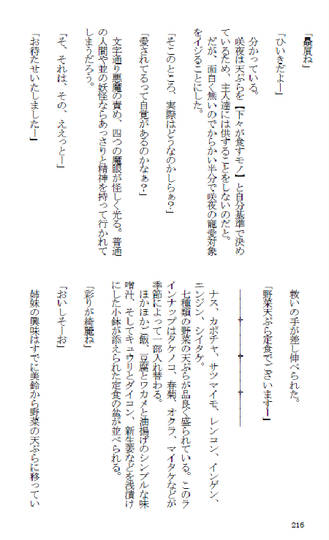 「贔屓ね」
「ひいきだよー」
分かっている。
咲夜は天ぷらを【下々が食すモノ】と自分基準で決め
ているため、主人達には供することをしないのだと。
だが、面白く無いのでからかい半分で咲夜の寵愛対象
をイジることにした。
「そこのところ、実際はどうなのかしらぁ？」
「愛されてるって自覚があるのかなぁ？」
文字通り悪魔の責め、四つの魔眼が怪しく光る。普通
の人間や並の妖怪ならあっさりと精神を持って行かれて
しまうだろう。
「そ、それは、その、ええっとー」
「お待たせいたしましたー」
救いの手が差し伸べられた。
「野菜天ぷら定食でございますー」
ナス、カボチャ、サツマイモ、レンコン、インゲン、
ニンジン、シイタケ。
七種類の野菜の天ぷらが品良く盛られている。このラ
インナップはタケノコ、春菊、オクラ、マイタケなどが
季節によって一部入れ替わる。
ほかほかご飯、豆腐とワカメと油揚げのシンプルな味
噌汁、そしてキュウリとダイコン、新生姜などを浅漬け
にした小鉢が添えられた定食の盆が並べられる。
「彩りが綺麗ね」
「おいしそーお」
姉妹の興味はすでに美鈴から野菜の天ぷらに移ってい
216